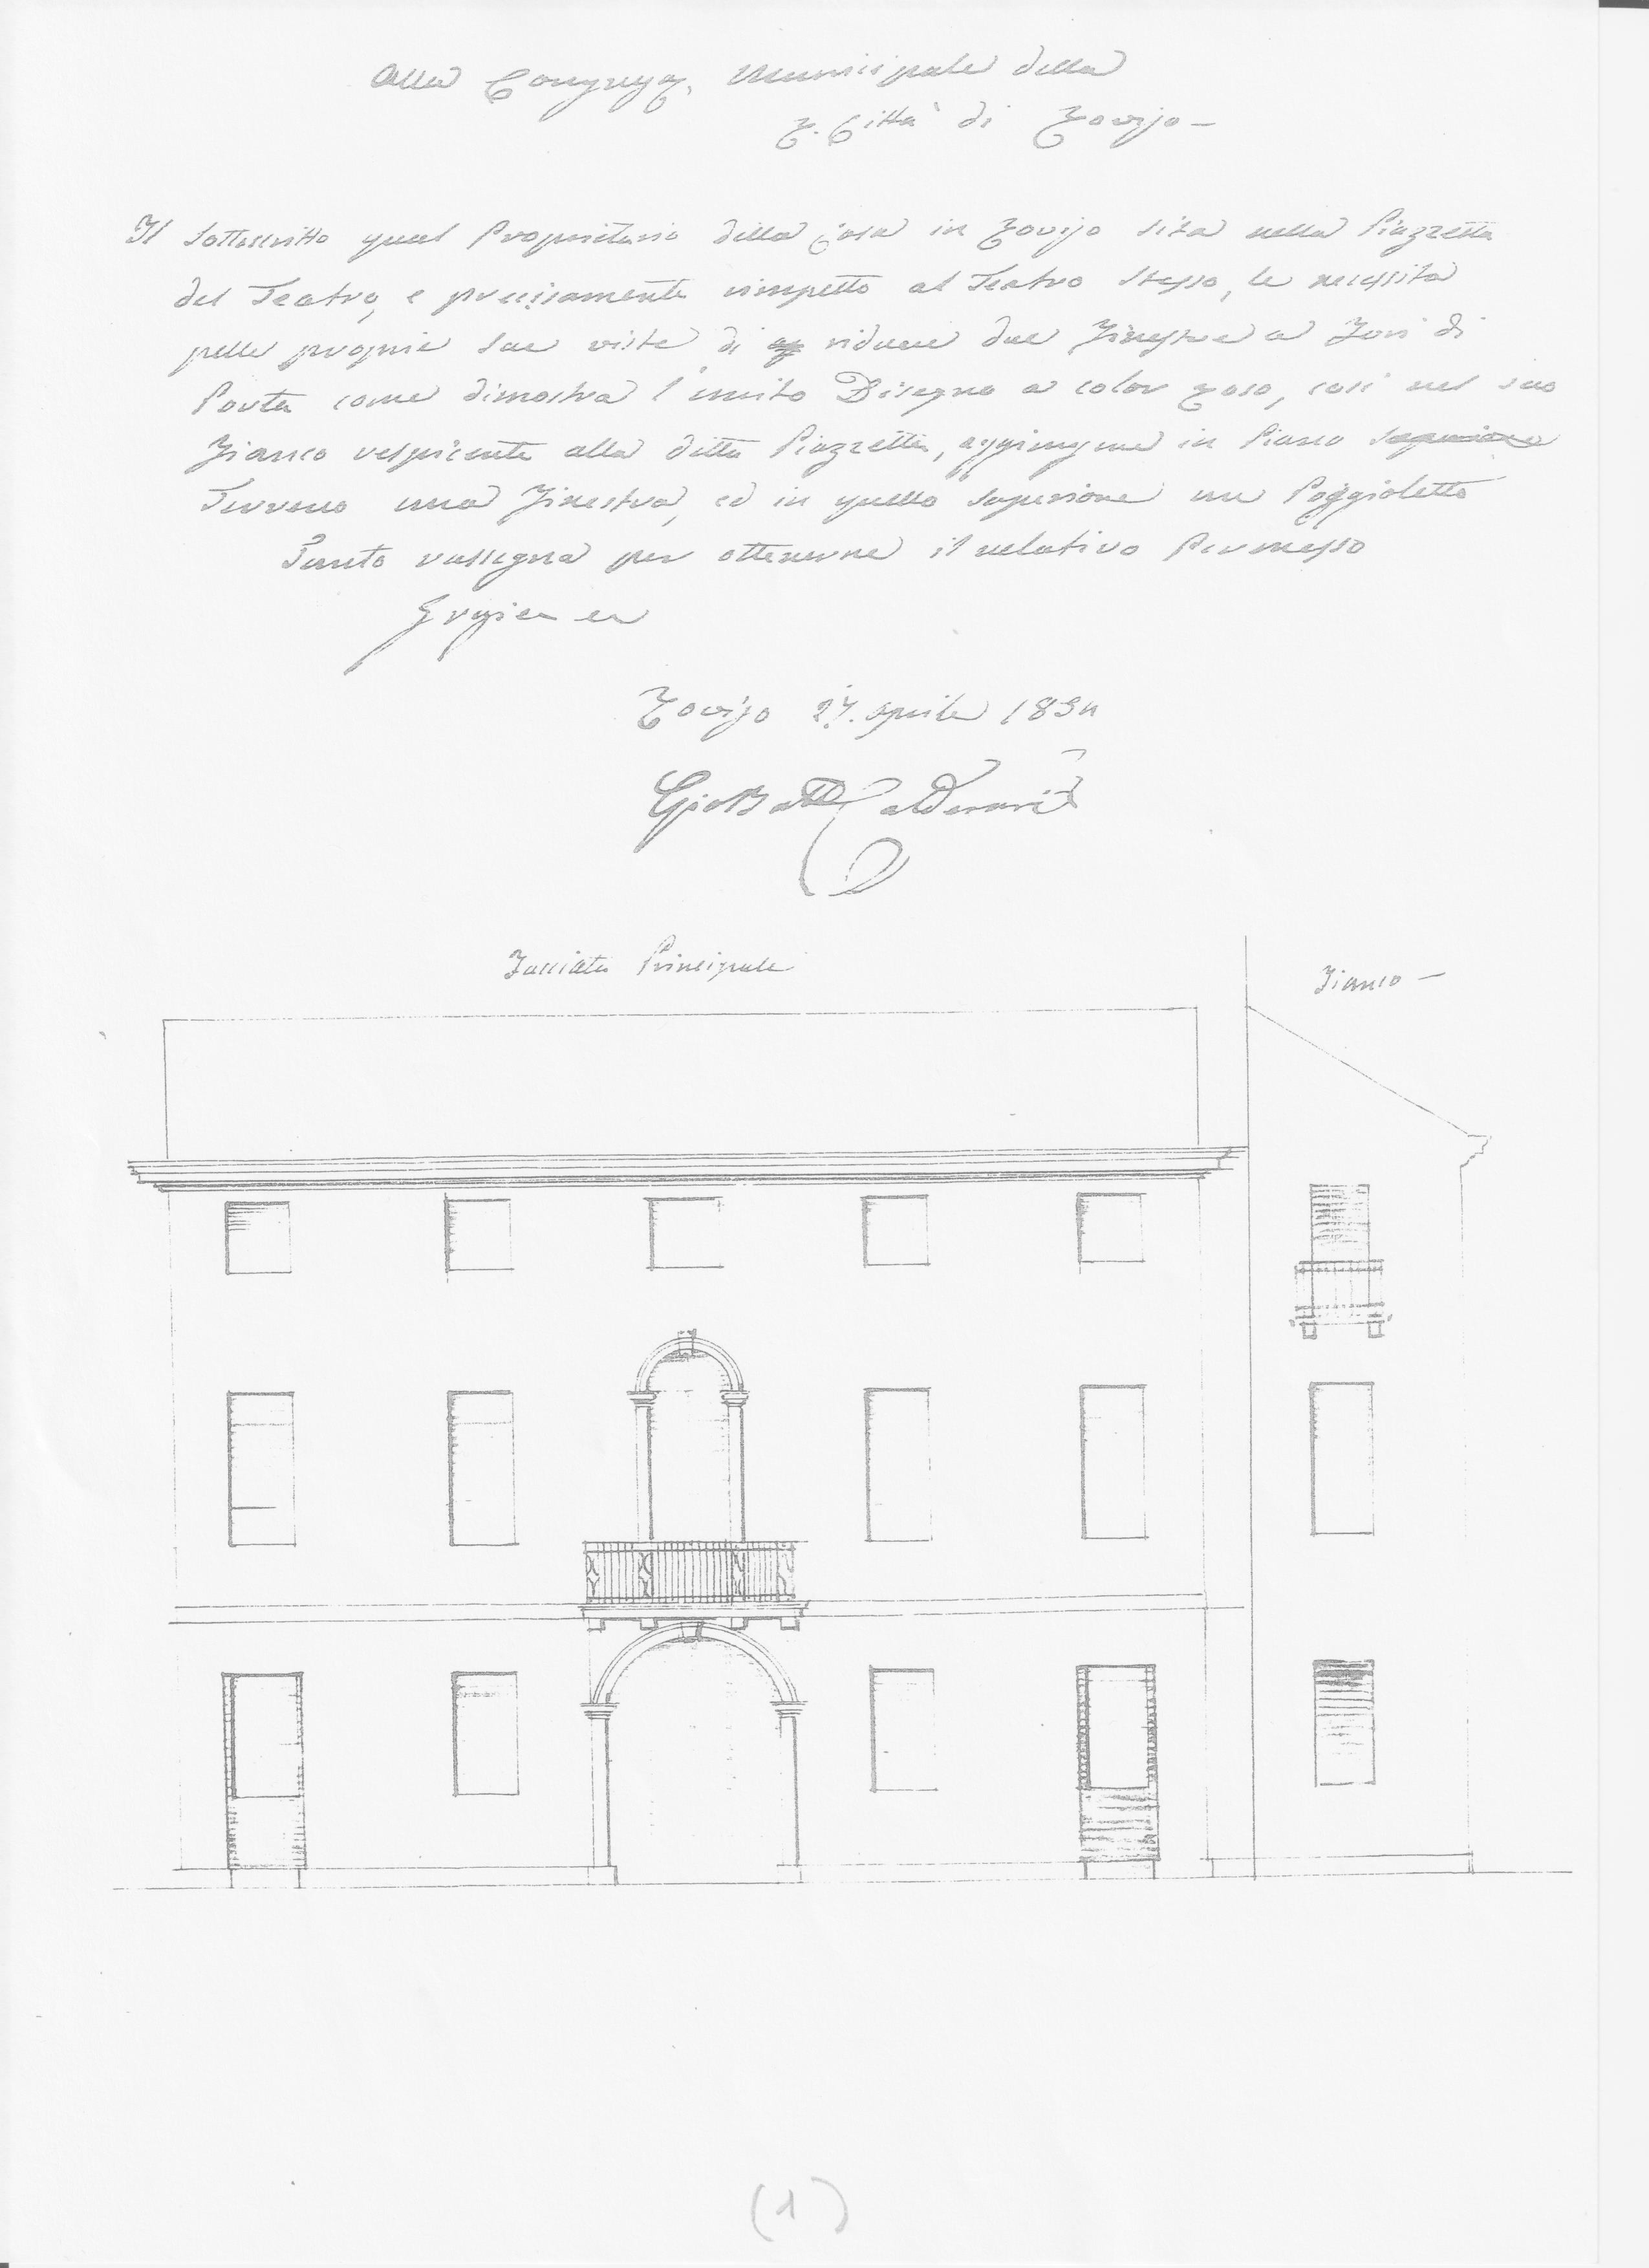 Alla Congregaz. Municipale della
R. Città di Rovigo –
Il Sottoscritto qual Proprietario della Casa in Rovigo sita nella Piazzetta
del Teatro, e precisamente rimpetto al Teatro Stesso, le necessita
pelle proprie sue viste di ridurre due Finestre a Fori di
Porta come dimostra l'unito Disegno a color Roso, così nel suo
Fianco respicente alla detta Piazzetta, aggiungere in Piano superiore
Terreno una Finestra, ed in quello Superiore un Poggioletto
Tanto rassegna per ottenerne il relativo Permesso
Grazie
Rovigo 27. Aprile 1834
Gio Batta Calderari
Facciata Principale
Fianco –
(1)